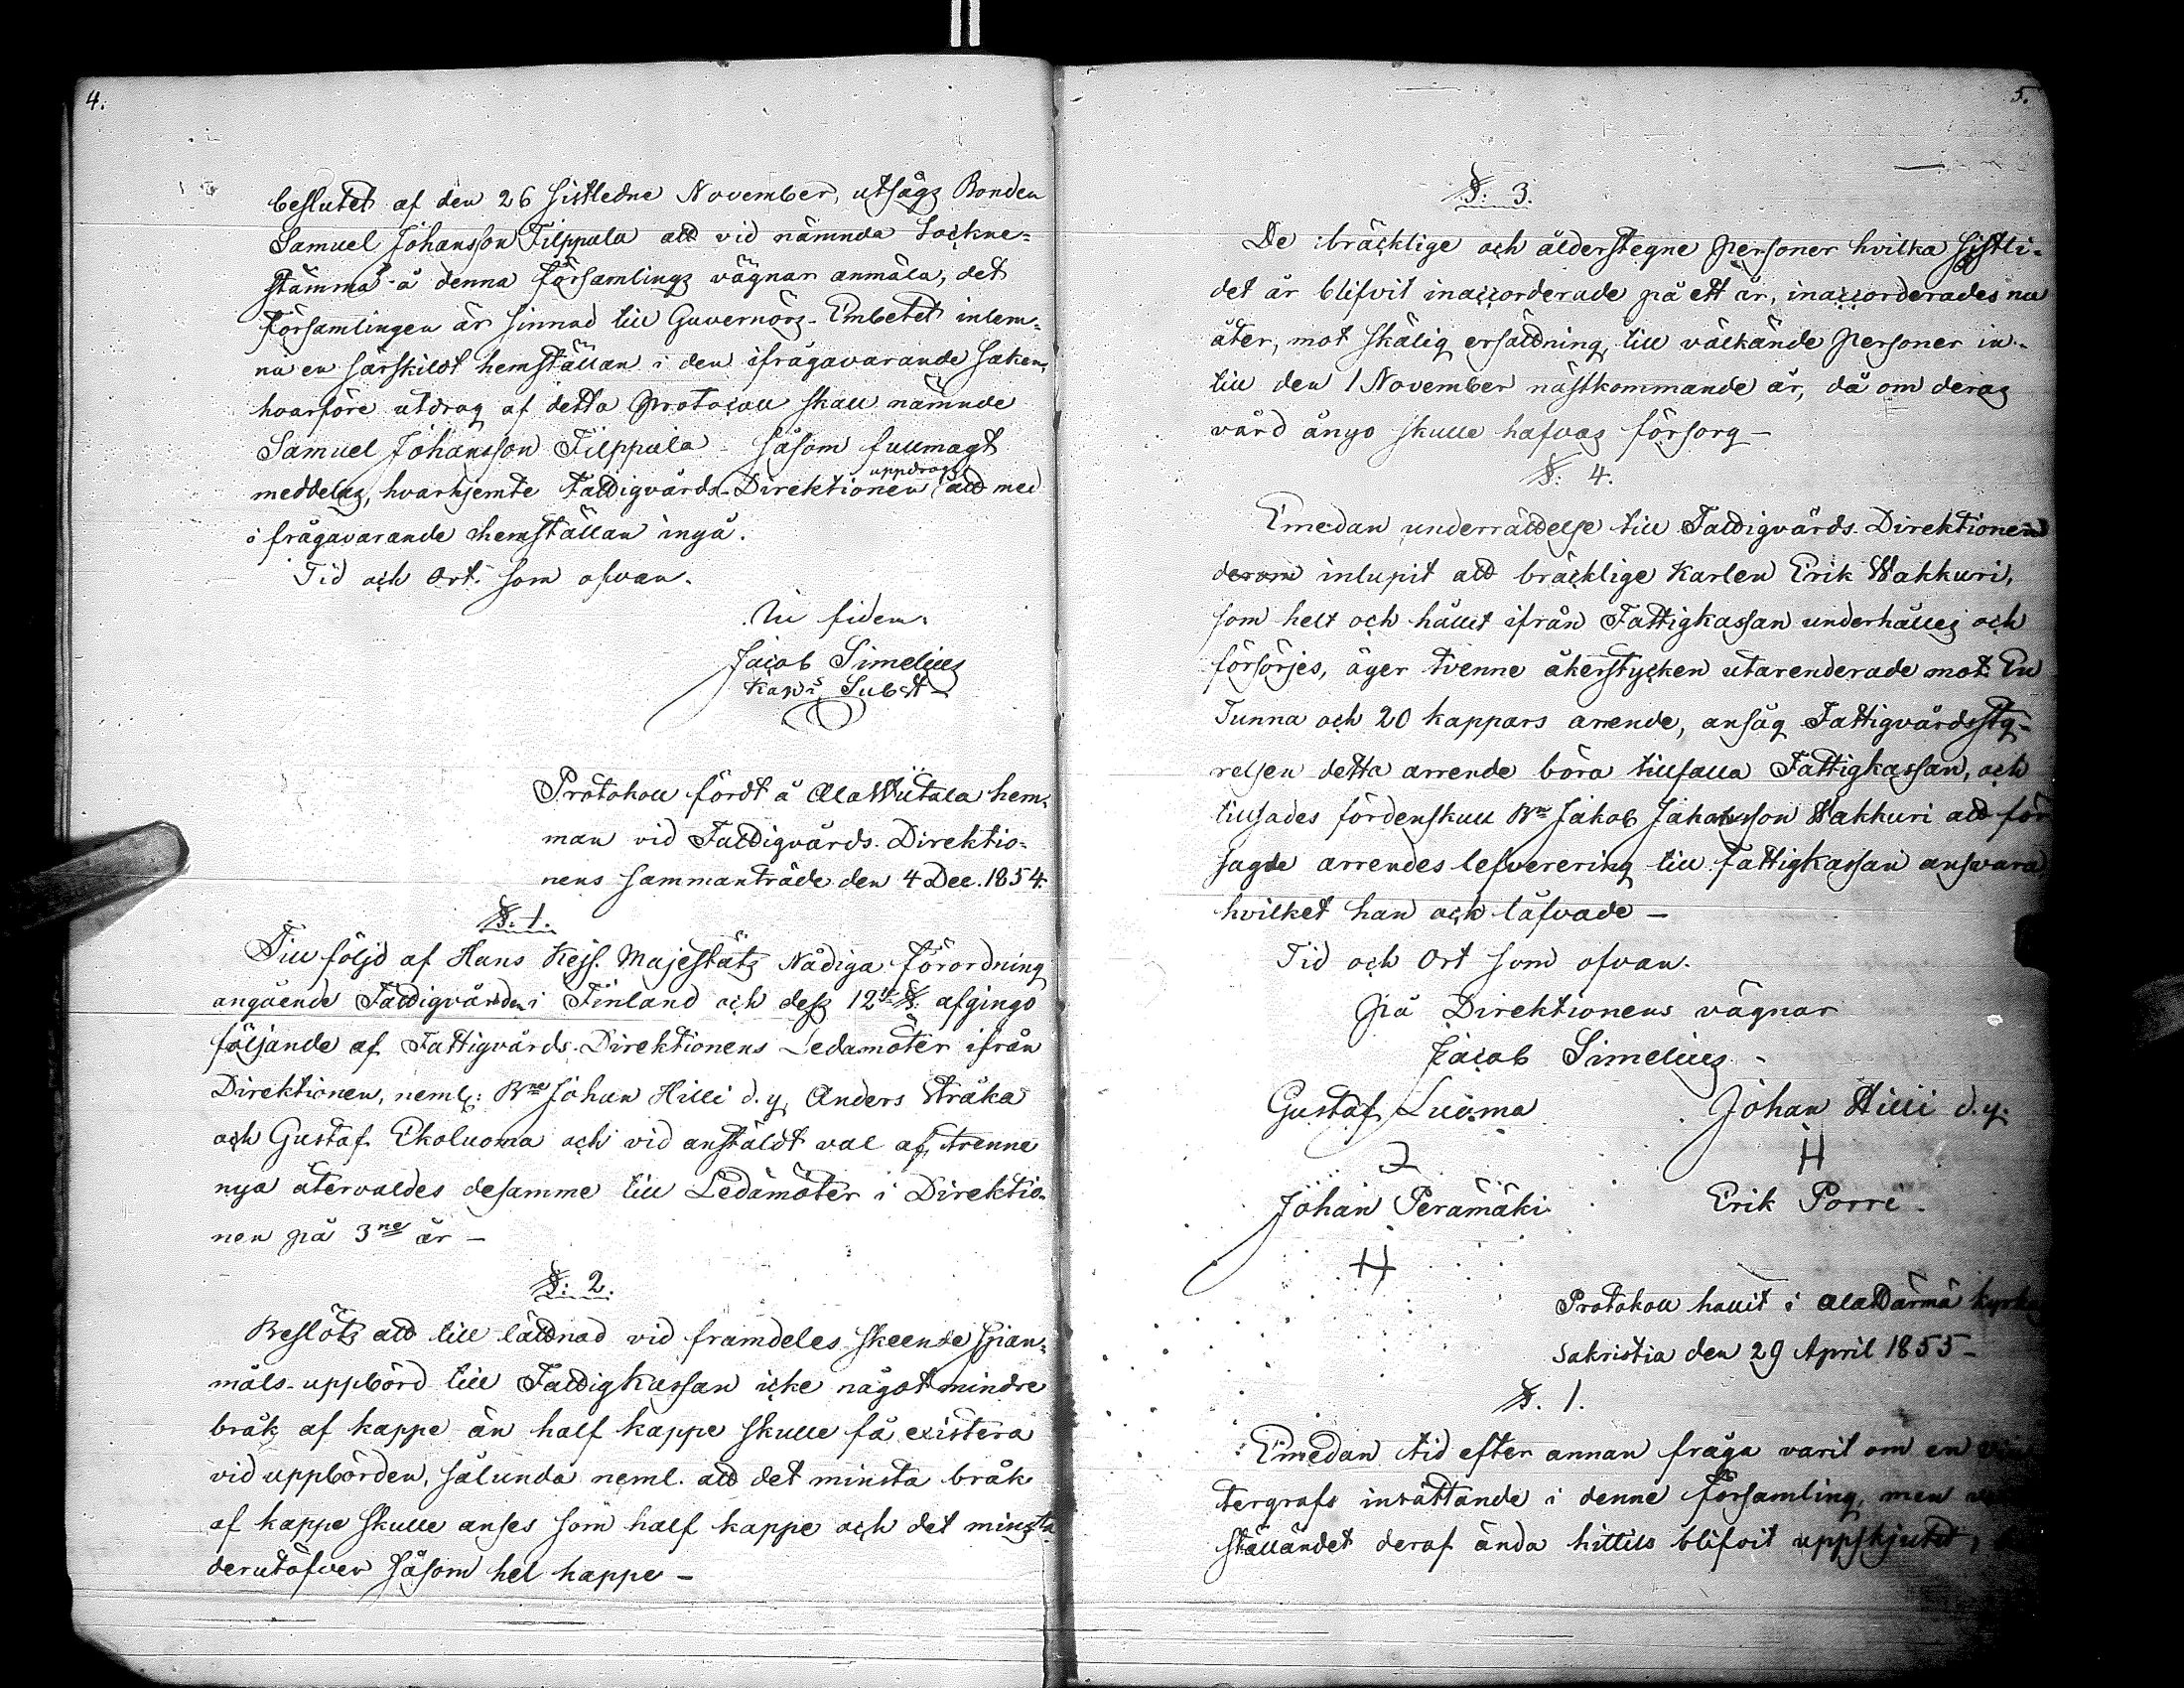 4.
beslutet af den 26 sistledne November, utsågs Bonden
Samuel Johansson Filppula att vid nämnda Sockne-
stämma å denna Församlings vägnar anmäla, det
Församlingen är sinnad till Guvernörs-Embetet inlem-
na en särskildt hemställan i den ifrågavarande saken,
hvarföre utdrag af detta Protocoll skall nämnde
Samuel Johansson Filppula såsom fullmagt
meddelas, hvarhjemte Fattigvårds-Direktionen uppdrogs att med
ifrågavarande hemställan ingå.
Tid och Ort som ofvan.
In fidem:
Jacob Simelius
Kap:s Subst.
Protokoll fördt å AlaWiitala hem-
man vid Fattigvårds-Direktio-
nens sammanträde den 4 Dec. 1854.
§. 1.
Till följd af Hans Kejs. Majestäts Nådiga Förordning
angående Fattigvården i Finland och dess 12te §. afgingo
följande af Fattigvårds-Direktionens Ledamöter ifrån
Direktionen, neml: Bne Johan Hilli d.y, Anders Sträka
och Gustaf Ekoluoma och vid anstäldt val af trenne
nya återvaldes desamme till Ledamöter i Direktio-
nen på 3ne år —
§: 2.
Beslöts att till lättnad vid framdeles skeende Span-
måls-uppbörd till Fattigkassan icke något mindre
bråk af kappe än half kappe skulle få existera
vid uppbörden, sålunda neml. att det minsta bråk
af kappe skulle anses som half kappe och det minsta
derutöfver såsom hel kappe —
5.
§: 3.
De bräcklige och ålderstegne personer hvilka sistli-
det år blifvit inaccorderade på ett år, inaccorderades nu
åter, mot skälig ersättning, till välkände personer in-
till den 1 November nästkommande år, då om deras
vård ånyo skulle hafvas försorg —
§: 4.
Emedan underrättelse till Fattigvårds-Direktionen
derom inlupit att bräcklige Karlen Erik Wakkuri,
som helt och hållit ifrån Fattigkassan underhålles och
försörjes, äger tvenne åkerstycken utarenderade mot En
Tunna och 20 kappars arrende, ansåg Fattigvårdssty-
relsen detta arrende böra tillfalla Fattigkassan, och
tillsades fördenskull Bn Jakob Jakobsson Wakkuri att för
sagde arrendes lefverering till Fattigkassan ansvara,
hvilket han ock låfvade —
Tid och Ort som ofvan.
På Direktionens vägnar
Jacob Simelius
Gustaf Luoma Johan Hilli d.y.
H
Johan Perämäki Erik Porre
H
Protokoll hållit i AlaHärmä kyrko
Sakristia den 29 April 1855 —
§. 1.
Emedan tid efter annan fråga varit om en
tergrafs inrättande i denne Församling, men
ställandet deraf ända hittils blifvit uppskjutet,